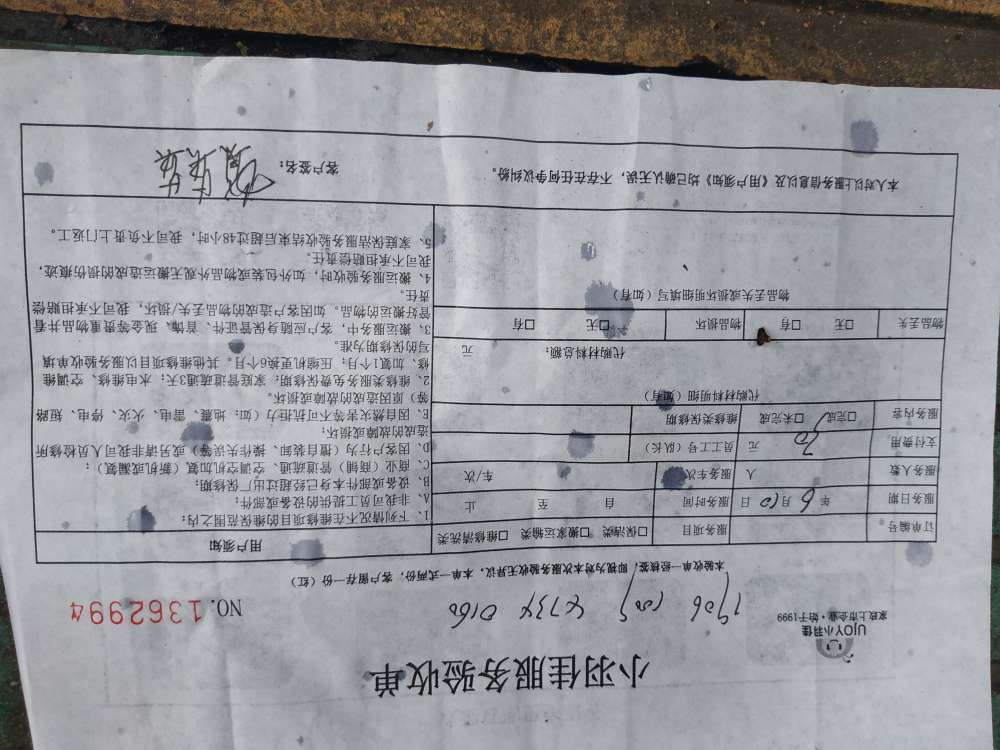 小羽佳服务验收单
UJOY小羽佳
家政上市企业·始于1999
1906 1005 4734 0160
NO.1362994
本验收单一经核签，即视为对本次服务验收无异议，本单一式两份，客户留存一份（红）
订单编号 服务项目 □保洁类 □搬家运输类 □维修清洗类
服务日期 年 6 月 10 日 服务时间 自 至 止
服务人数 人 服务车次 车/次
支付费用 30 元 员工工号（队长）
服务内容 □完成 □未完成 维修类保修期
代购材料明细（如有）
代购材料总额： 元
物品丢失 □无 □有 物品损坏 □无 □有
物品丢失或损坏明细填写（如有）
用户须知
1、下列情况不在维修项目的维保范围之内：
A、非我司员工提供的设备或部件；
B、设备或部件本身已经超过出厂保修期；
C、商业（商铺）管道疏通、空调空机加氟（新机或漏氟）；
D、因客户行为（擅自装卸、操作失误等）或另请非我司人员检修所
造成的故障或损坏；
E、因自然灾害等不可抗拒力（如：地震、雷电、火灾、停电、短路
等）原因造成的故障或损坏。
2、维修类服务免费保修期：家庭管道疏通3天；水电维修、空调维
修、加氟1个月；压缩机更换6个月。其他维修项目以服务验收单填
写的保修期为准。
3、搬运服务中，客户应随身保管证件、首饰、现金等贵重物品并看
管好搬运的物品。如因客户造成的物品丢失/损坏，我司不承担赔偿
责任。
4、搬运服务验收时，如外包装或物品外观无搬运造成的损伤痕迹，
我司不承担赔偿责任。
5、家庭保洁服务验收结束后超过48小时，我司不负责上门返工。
本人对以上服务信息以及《用户须知》均已确认无误，不存在任何争议纠纷。
客户签名：